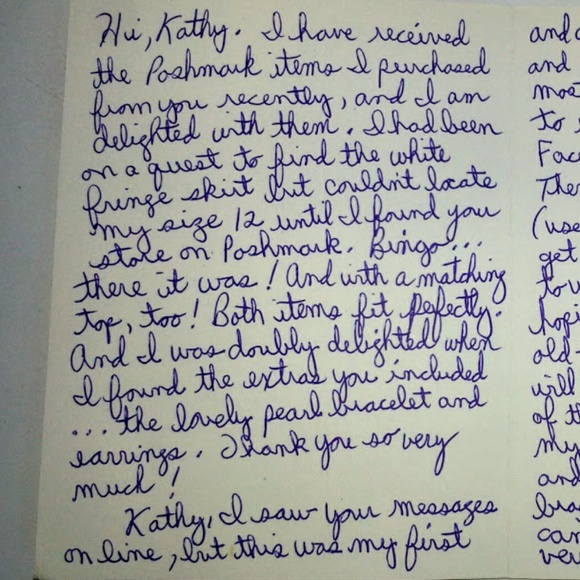 Hi, Kathy. I have received
the Poshmark items I purchased
from you recently, and I am
delighted with them. I had been
on a quest to find the white
fringe skirt but couldn't locate
my size 12 until I found you
store on Poshmark. Bingo...
there it was! And with a matching
top, too! Both items fit perfectly.
And I was doubly delighted when
I found the extras you included
... the lovely pearl bracelet and
earrings. Thank you so very
much!
Kathy, I saw your messages
on line, but this was my first
and
most
to
(use
get
hopi
old-
will
of th
my
and
bra
can
ver